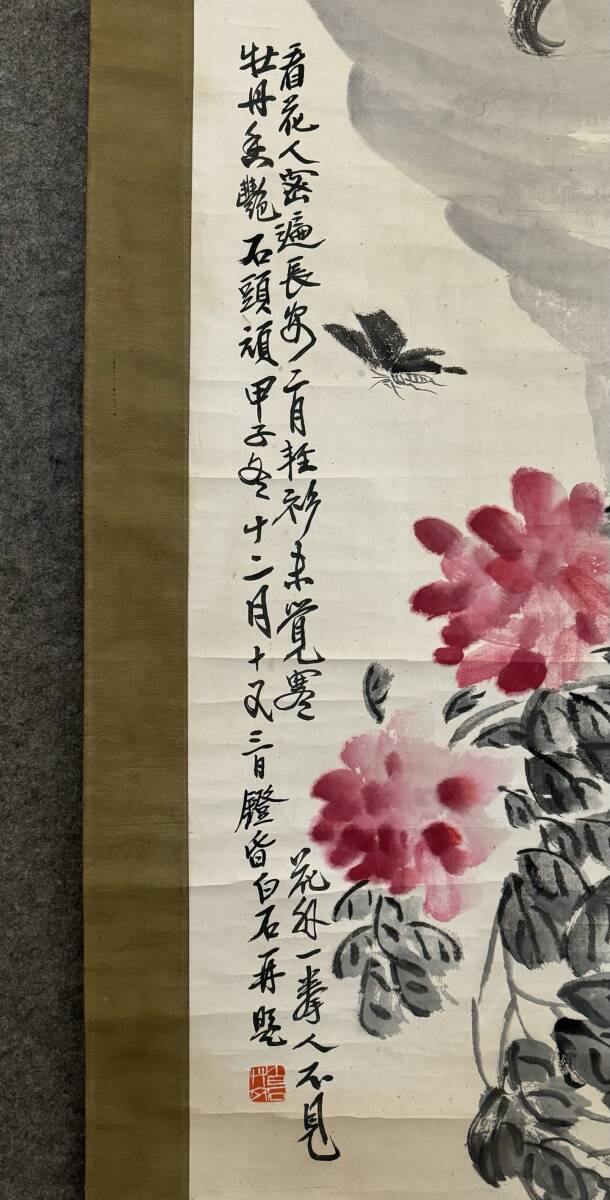 看花人密遍長安二月輕衫未覺寒花外一拳人不見
牡丹香艷石頭頑甲子冬十二月十又三日鐙昏白石再題